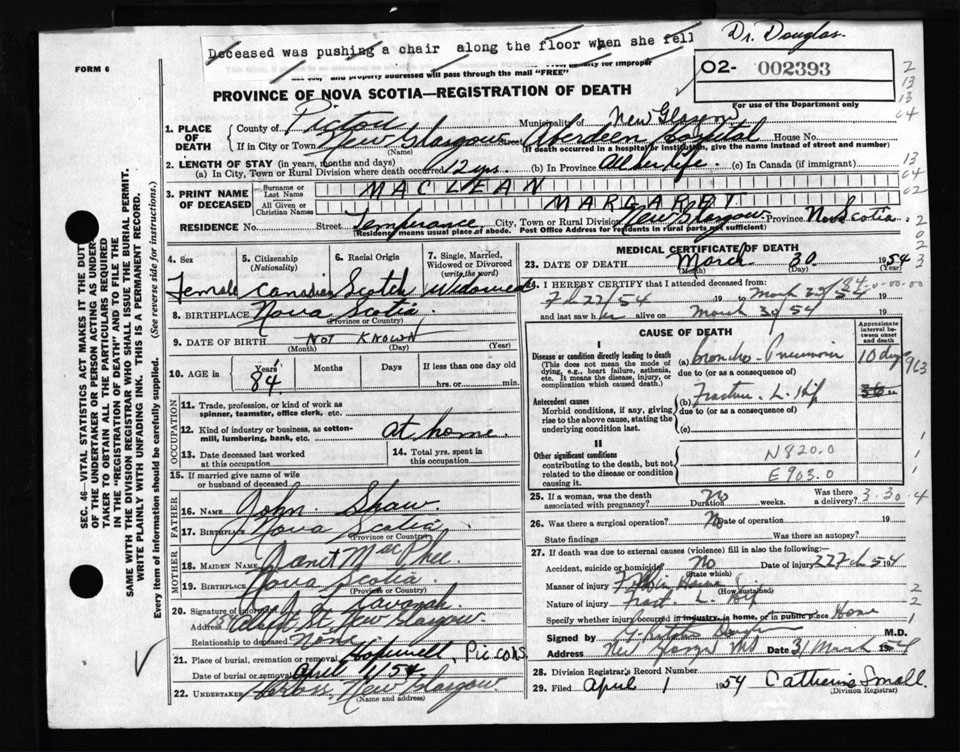 Deceased was pushing a chair along the floor when she fell
Dr. Douglas.
FORM 6
and property addressed will pass through the mail "FREE"
02- 002393
For use of the Department only
2
13
13
04
PROVINCE OF NOVA SCOTIA—REGISTRATION OF DEATH
1. PLACE OF DEATH
County of Pictou Municipality of New Glasgow
If in City or Town New Glasgow Street Aberdeen Hospital House No.
(Name) (If death occurred in a hospital or institution, give the name instead of street and number)
2. LENGTH OF STAY (in years, months and days)
(a) In City, Town or Rural Division where death occurred 12 yrs. (b) In Province All her life. (c) In Canada (if immigrant)
13
04
02
3. PRINT NAME OF DECEASED
Surname or Last Name MACLEAN
All Given or Christian Names MARGARET
RESIDENCE No. Street Temperance City, Town or Rural Division New Glasgow Province Nova Scotia.
(Residency means usual place of abode. Post Office Address for residents in rural parts not sufficient)
4. Sex
Female
5. Citizenship (Nationality)
Canadian
6. Racial Origin
Scotch
7. Single, Married, Widowed or Divorced (write the word)
Widowed
8. BIRTHPLACE Nova Scotia
(Province or Country)
9. DATE OF BIRTH NOT KNOWN
(Month) (Day) (Year)
10. AGE in Years Months Days If less than one day old
84 hrs. or min.
OCCUPATION
11. Trade, profession, or kind of work as spinner, teamster, office clerk, etc.
12. Kind of industry or business, as cotton-mill, lumbering, bank, etc. at home.
13. Date deceased last worked at this occupation
14. Total yrs. spent in this occupation
15. If married give name of wife or husband of deceased
FATHER
16. NAME John Shaw
17. BIRTHPLACE Nova Scotia
(Province or Country)
MOTHER
18. MAIDEN NAME Janet MacPhee
19. BIRTHPLACE Nova Scotia
(Province or Country)
20. Signature of informant Kavanah.
Address St. New Glasgow.
Relationship to deceased None
21. Place of burial, cremation or removal Hopewell, Pic co NS.
Date of burial or removal April 1/54
22. Undertaker New Glasgow
(Name and address)
MEDICAL CERTIFICATE OF DEATH
23. DATE OF DEATH March 30 1954
(Month) (Day) (Year)
24. I HEREBY CERTIFY that I attended deceased from:
Feb 22/54 19 to March 30/54 19
and last saw her alive on March 30/54 19
CAUSE OF DEATH
Approximate interval between onset and death
I
Disease or condition directly leading to death
(This does not mean the mode of dying, e.g., heart failure, asthenia, etc. It means the disease, injury, or complication which caused death.)
(a) Broncho-Pneumonia 10 days
due to (or as a consequence of)
963
Antecedent causes
Morbid conditions, if any, giving rise to the above cause, stating the underlying condition last.
(b) Fracture L. Hip
due to (or as a consequence of)
(c)
II
Other significant conditions
contributing to the death, but not related to the disease or condition causing it.
N820.0
E903.0
25. If a woman, was the death associated with pregnancy? No Duration weeks. Was there a delivery?
3-30-4
26. Was there a surgical operation? No Date of operation 19
State findings Was there an autopsy?
27. If death was due to external causes (violence) fill in also the following:
Accident, suicide or homicide? No Date of injury 22 Feb 1954
(State which)
Manner of injury Fell in Home
(How sustained)
Nature of injury Fract. L. Hip
Specify whether injury occurred in industry, in home, or in public place Home
Signed by M.D.
Address New Glasgow NS Date 31 March 1954
28. Division Registrar's Record Number
29. Filed April 1 1954 Catherine Small.
(Division Registrar)
SEC. 46—VITAL STATISTICS ACT MAKES IT THE DUTY
OF THE UNDERTAKER OR PERSON ACTING AS UNDER-
TAKER TO OBTAIN ALL THE PARTICULARS REQUIRED
IN THE "REGISTRATION OF DEATH" AND TO FILE THE
SAME WITH THE DIVISION REGISTRAR WHO SHALL ISSUE THE BURIAL PERMIT.
WRITE PLAINLY WITH UNFADING INK. THIS IS A PERMANENT RECORD.
Every item of information should be carefully supplied. (See reverse side for instructions.)